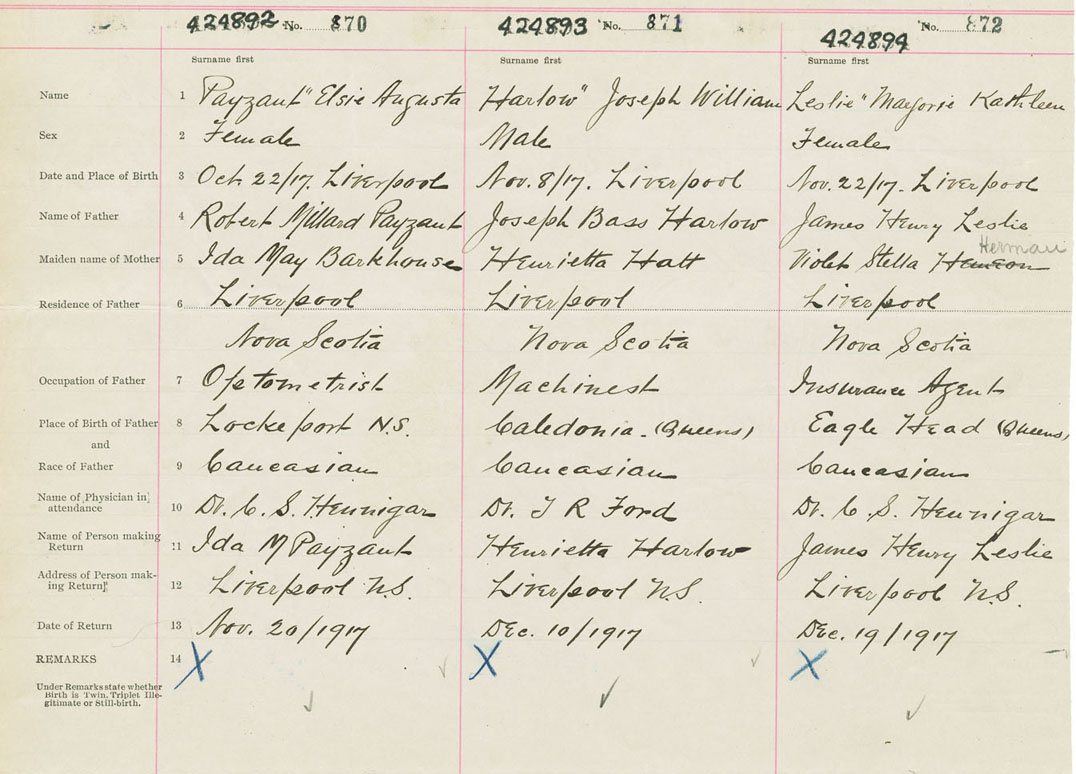 424892 No. 870 424893 No. 871 424894 No. 872
Surname first Surname first Surname first
Name 1 Payzant" Elsie Augusta Harlow" Joseph William Leslie" Marjorie Kathleen
Sex 2 Female Male Female
Date and Place of Birth 3 Oct 22/17. Liverpool Nov. 8/17. Liverpool Nov. 22/17. Liverpool
Name of Father 4 Robert Millard Payzant Joseph Bass Harlow James Henry Leslie
Herman
Maiden name of Mother 5 Ida May Barkhouse Henrietta Hatt Violet Stella
Residence of Father 6 Liverpool Liverpool Liverpool
Nova Scotia Nova Scotia Nova Scotia
Occupation of Father 7 Optometrist Machinest Insurance Agent
Place of Birth of Father 8 Lockeport N.S. Caledonia. (Queens) Eagle Head (Queens)
and
Race of Father 9 Caucasian Caucasian Caucasian
Name of Physician in
attendance 10 Dr. C. S. Hennigar Dr. T R Ford Dr. C. S. Hennigar
Name of Person making
Return 11 Ida M Payzant Henrietta Harlow James Henry Leslie
Address of Person mak-
ing Return 12 Liverpool N.S. Liverpool N.S. Liverpool N.S.
Date of Return 13 Nov. 20/1917 Dec. 10/1917 Dec. 19/1917
REMARKS 14 X X X
Under Remarks state whether
Birth is Twin, Triplet Ille-
gitimate or Still-birth.